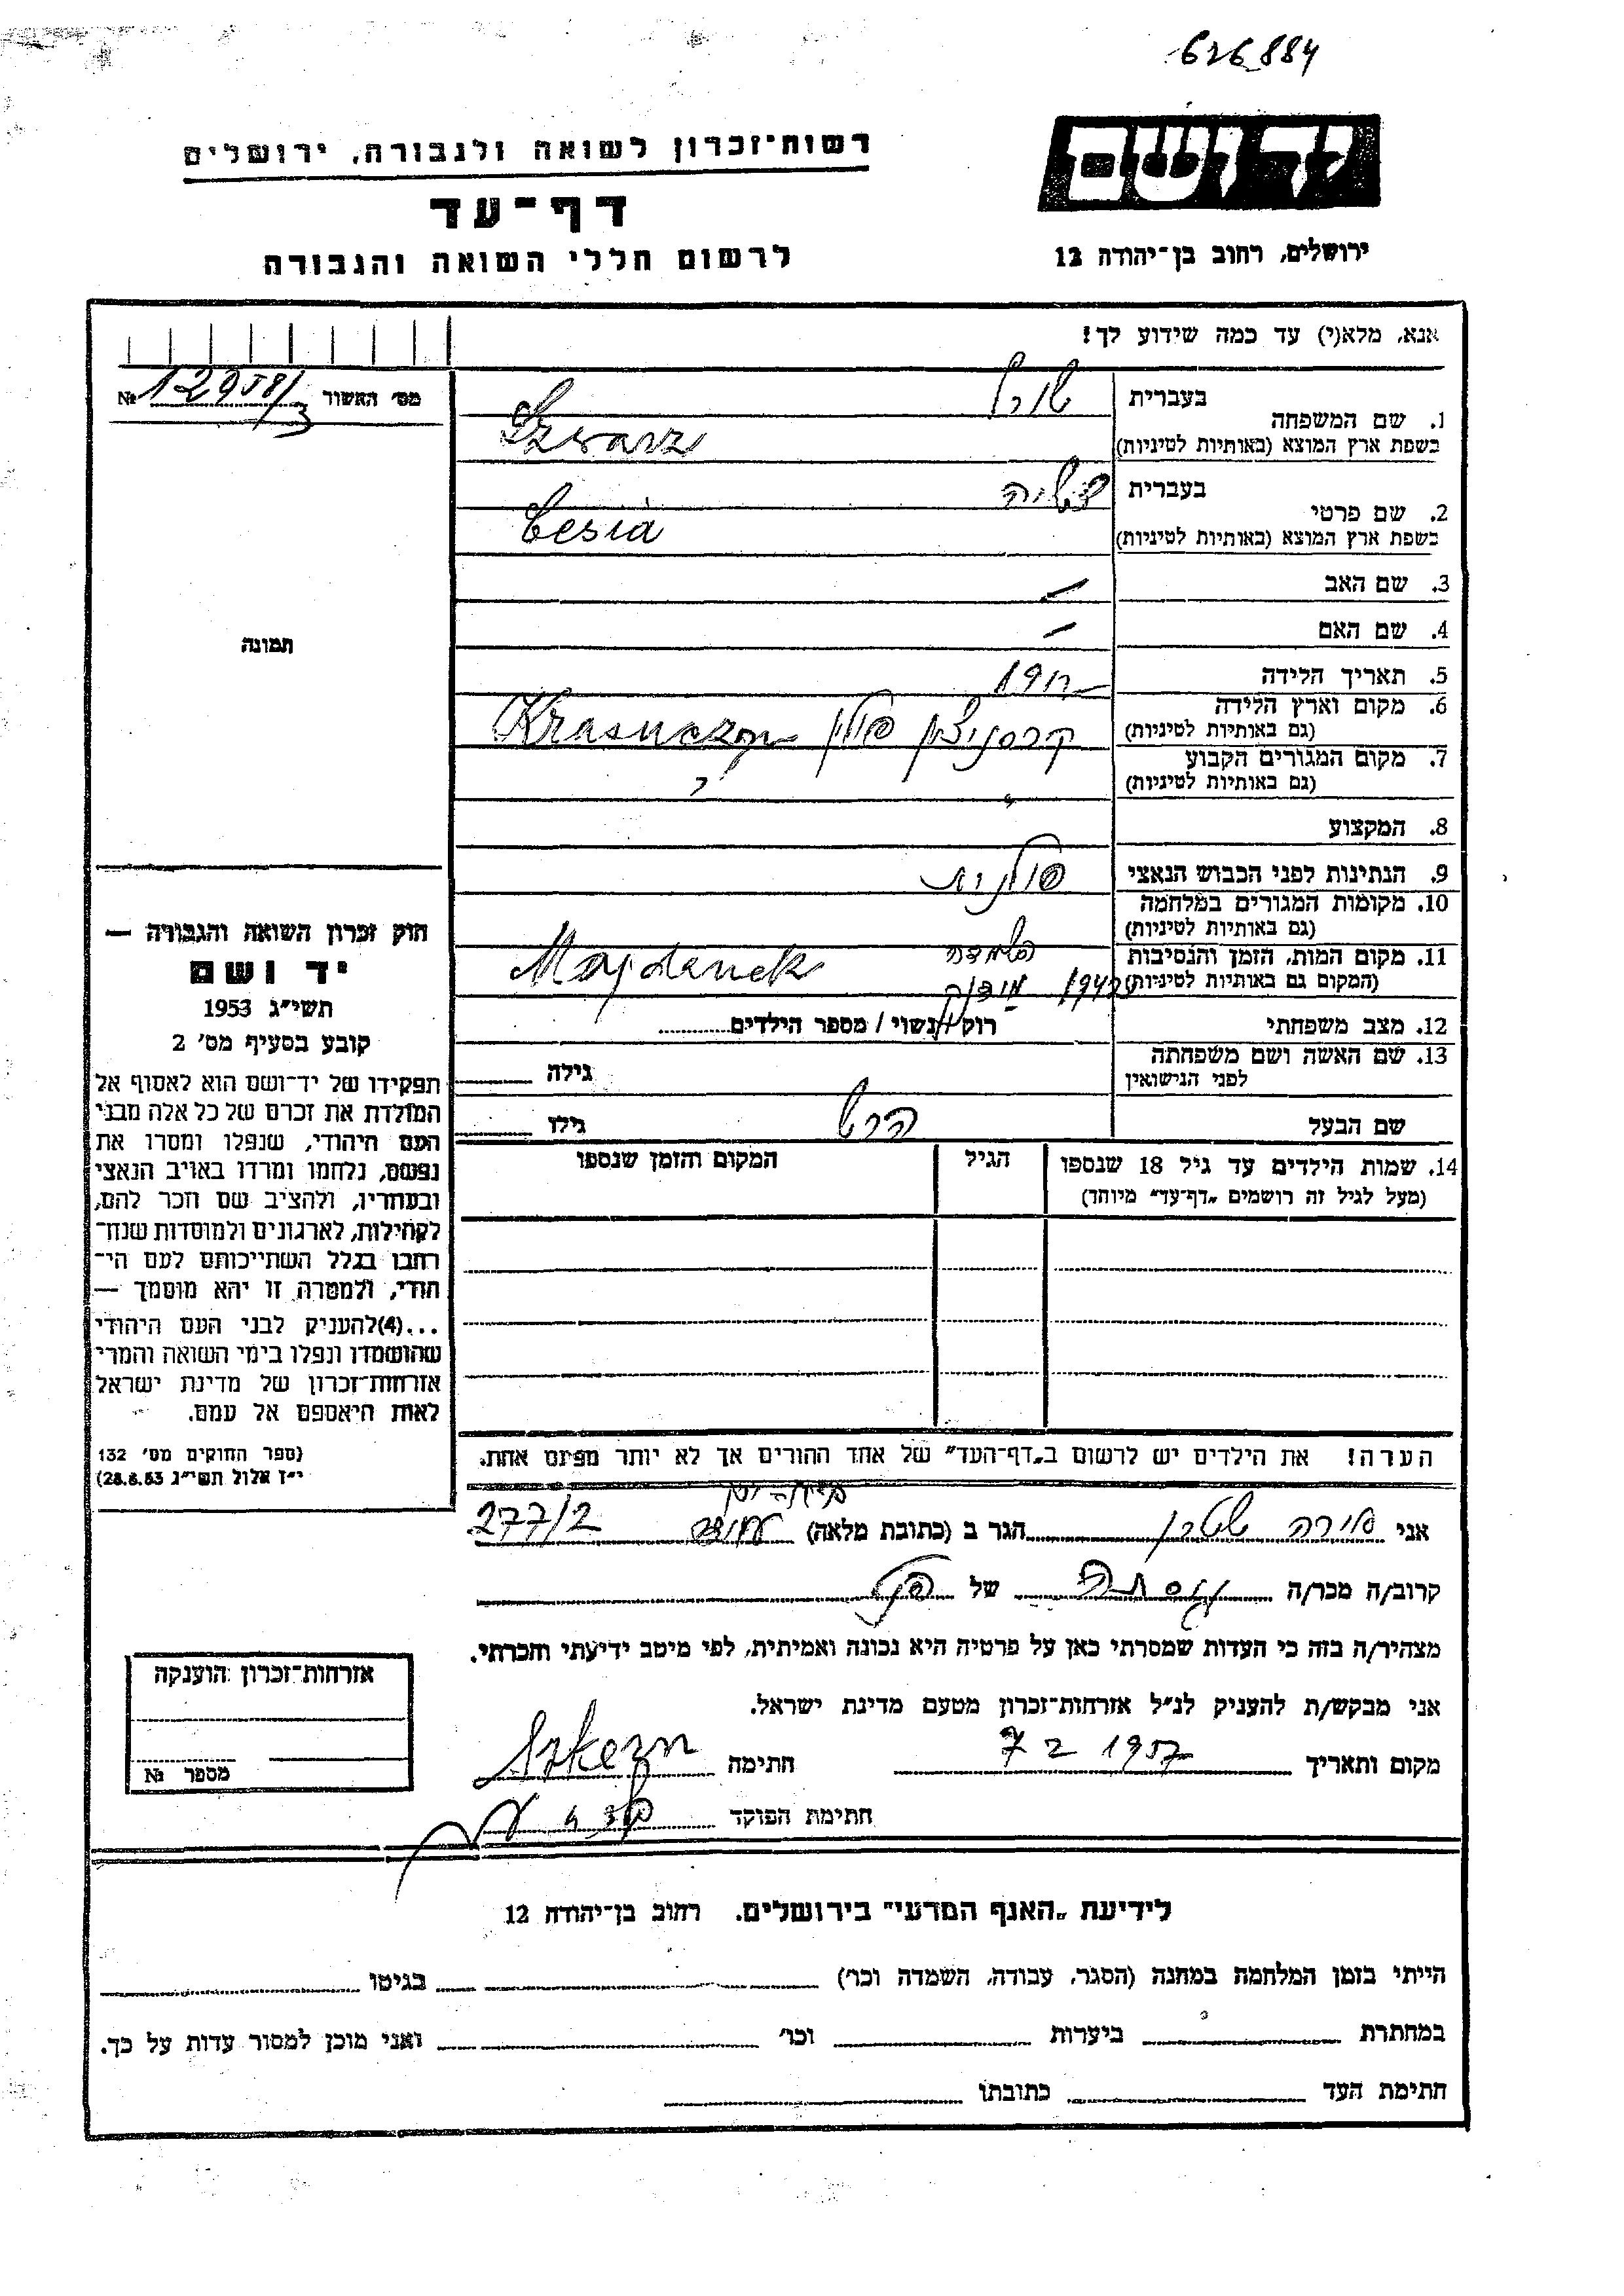 626884
יד ושם
רשות־זכרון לשואה ולגבורה, ירושלים
דף־עד
לרשום חללי השואה והגבורה
ירושלים, רחוב בן־יהודה 12
אנא, מלא(י) עד כמה שידוע לך!
מס' האשור № 12958/3
1. שם המשפחה
בעברית
בשפת ארץ המוצא (באותיות לטיניות) Szwarz
2. שם פרטי
בעברית
בשפת ארץ המוצא (באותיות לטיניות) Cesia
3. שם האב –
4. שם האם –
5. תאריך הלידה
6. מקום וארץ הלידה
(גם באותיות לטיניות)
פולין
7. מקום המגורים הקבוע
(גם באותיות לטיניות)
8. המקצוע
9. הנתינות לפני הכבוש הנאצי פולנית
10. מקומות המגורים במלחמה
(גם באותיות לטיניות)
11. מקום המות, הזמן והנסיבות
(המקום גם באותיות לטיניות)
Majdanek
12. מצב משפחתי רוק / נשוי / מספר הילדים
13. שם האשה ושם משפחתה
לפני הנישואין
גילה
שם הבעל
גילו
14. שמות הילדים עד גיל 18 שנספו
(מעל לגיל זה רושמים „דף־עד" מיוחד)
הגיל
המקום והזמן שנספו
תמונה
חוק זכרון השואה והגבורה —
יד ושם
תשי"ג 1953
קובע בסעיף מס' 2
תפקידו של יד־ושם הוא לאסוף אל
המולדת את זכרם של כל אלה מבני
העם היהודי, שנפלו ומסרו את
נפשם, נלחמו ומרדו באויב הנאצי
ובעוזריו, ולהציב שם וזכר להם,
לקהילות, לארגונים ולמוסדות שנח־
רבו בגלל השתייכותם לעם הי־
הודי, ולמטרה זו יהא מוסמך —
...(4)להעניק לבני העם היהודי
שהושמדו ונפלו בימי השואה והמרי
אזרחות־זכרון של מדינת ישראל
לאות היאספם אל עמם.
(ספר החוקים מס' 132
י"ז אלול תשי"ג 28.8.53)
הערה! את הילדים יש לרשום ב„דף־העד" של אחד ההורים אך לא יותר מפעם אחת.
אני הגר ב (כתובת מלאה) 277/2
קרוב/ה מכר/ה של
מצהיר/ה בזה כי העדות שמסרתי כאן על פרטיה היא נכונה ואמיתית, לפי מיטב ידיעתי והכרתי.
אני מבקש/ת להעניק לנ"ל אזרחות־זכרון מטעם מדינת ישראל.
מקום ותאריך 7 2 1957 חתימה
חתימת הפוקד
אזרחות־זכרון הוענקה
מספר №
לידיעת „האגף המדעי" בירושלים. רחוב בן־יהודה 12
הייתי בזמן המלחמה במחנה (הסגר, עבודה, השמדה וכו') בגיטו
במחתרת ביערות וכו' ואני מוכן למסור עדות על כך.
חתימת העד כתובתו